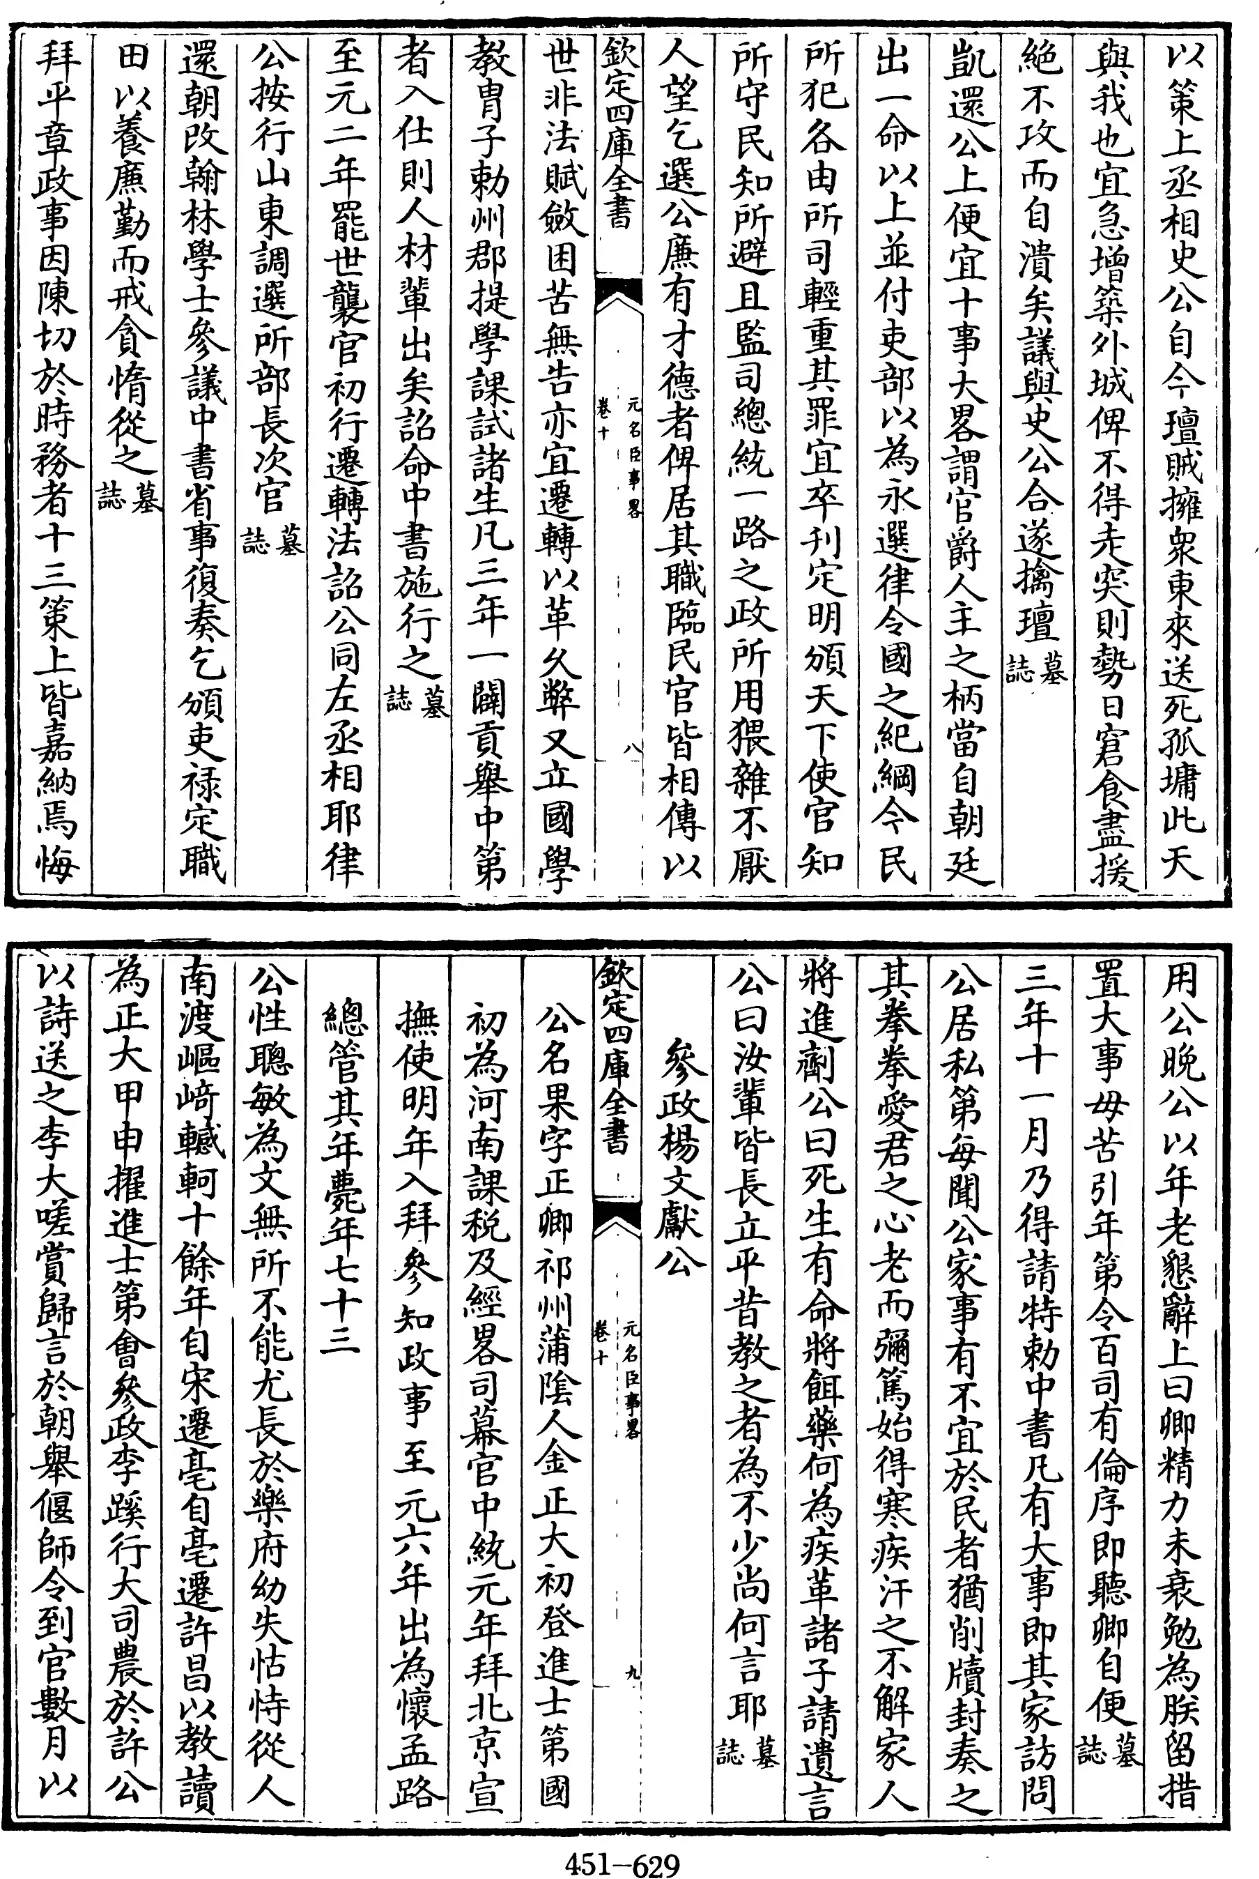 以策上丞相史公自今壇賊擁衆東來送死孤墉此天
與我也宜急增築外城俾不得走突則勢日窘食盡援
絶不攻而自潰矣議與史公合遂擒璮墓誌
凱還公上便宜十事大畧謂官爵人主之柄當自朝廷
出一命以上並付吏部以為永選律令國之紀綱今民
所犯各由所司輕重其罪宜卒刋定明頒天下使官知
所守民知所避且監司總統一路之政所用猥雜不厭
人望乞選公廉有才德者俾居其職臨民官皆相傳以
欽定四庫全書
元名臣事畧
卷十
八
世非法賦斂困苦無告亦宜遷轉以革久弊又立國學
教胄子勅州郡提學課試諸生凡三年一闢貢舉中第
者入仕則人材輩出矣詔命中書施行之墓誌
至元二年罷世襲官初行遷轉法詔公同左丞相耶律
公按行山東調選所部長次官墓誌
還朝改翰林學士參議中書省事復奏乞頒吏禄定職
田以養廉勤而戒貪惰從之墓誌
拜平章政事因陳切於時務者十三策上皆嘉納焉悔
用公晚公以年老懇辭上曰卿精力未衰勉為朕留措
置大事毋苦引年第令百司有倫序即聽卿自便墓誌
三年十一月乃得請特勅中書凡有大事即其家訪問
公居私第每聞公家事有不宜於民者猶削牘封奏之
其拳拳愛君之心老而彌篤始得寒疾汗之不解家人
將進劑公曰死生有命將餌藥何為疾革諸子請遺言
公曰汝輩皆長立平昔教之者為不少尚何言耶墓誌
參政楊文獻公
欽定四庫全書
元名臣事畧
卷十
九
公名果字正卿祁州蒲陰人金正大初登進士第國
初為河南課税及經畧司幕官中統元年拜北京宣
撫使明年入拜參知政事至元六年出為懷孟路
總管其年薨年七十三
公性聰敏為文無所不能尤長於樂府幼失怙恃從人
南渡嶇﨑轗軻十餘年自宋遷亳自亳遷許昌以教讀
為正大甲申擢進士第會參政李蹊行大司農於許公
以詩送之李大嗟賞歸言於朝舉偃師令到官數月以
451-629